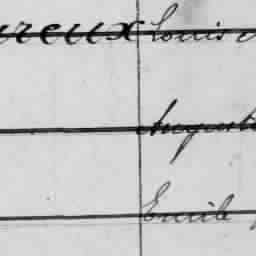 ureux Louis
Auguste
Emile